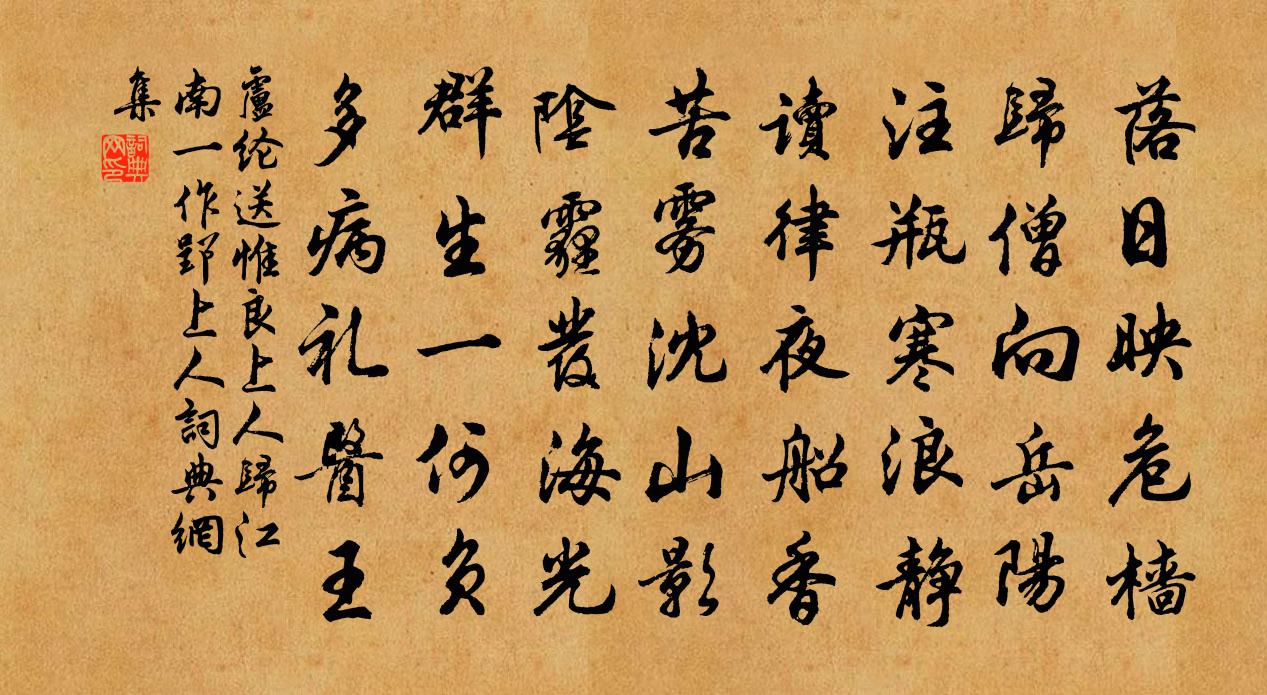 落日映危檣
歸僧向岳陽
注瓶寒浪靜
讀律夜船香
苦雾沈山影
陰霾發海光
群生一何负
多病礼醫王
盧纶送惟良上人歸江
南一作郢上人詞典網
集
詞典網印